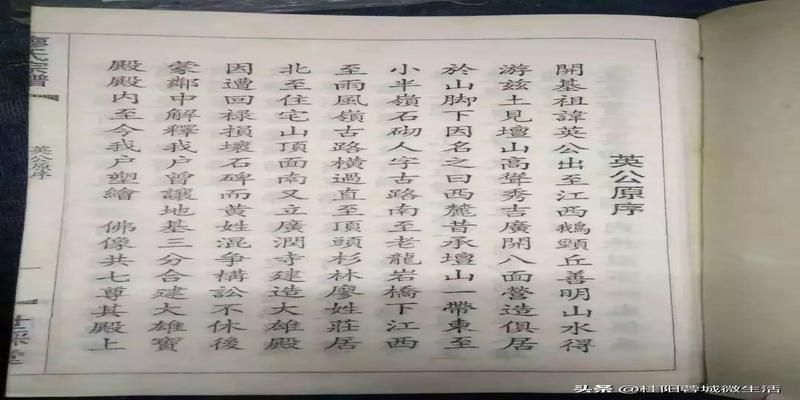 英公原序
開基祖諱英公出至江西鵝頸丘善明山水得
游兹土見壇山高聳秀吉廣開八面營造俱居
於山脚下因名之曰西麓昔承壇山一帶東至
小半嶺石砌人字古路南至老龍岩橋下江西
至雨風嶺古路橫過直至頂頭杉林廖姓莊居
北至住宅山頂面南又立廣潤寺建造大雄殿
因遭回禄損壞石碑而黄姓混争構訟不休後
蒙鄰中解釋我户曾讓地基三分合建大雄寶
殿殿内至今我户塑繪 佛像共七尊其殿上
廖氏宗譜
英公原序
一
世綵堂
头条 @桂阳蓉城微生活